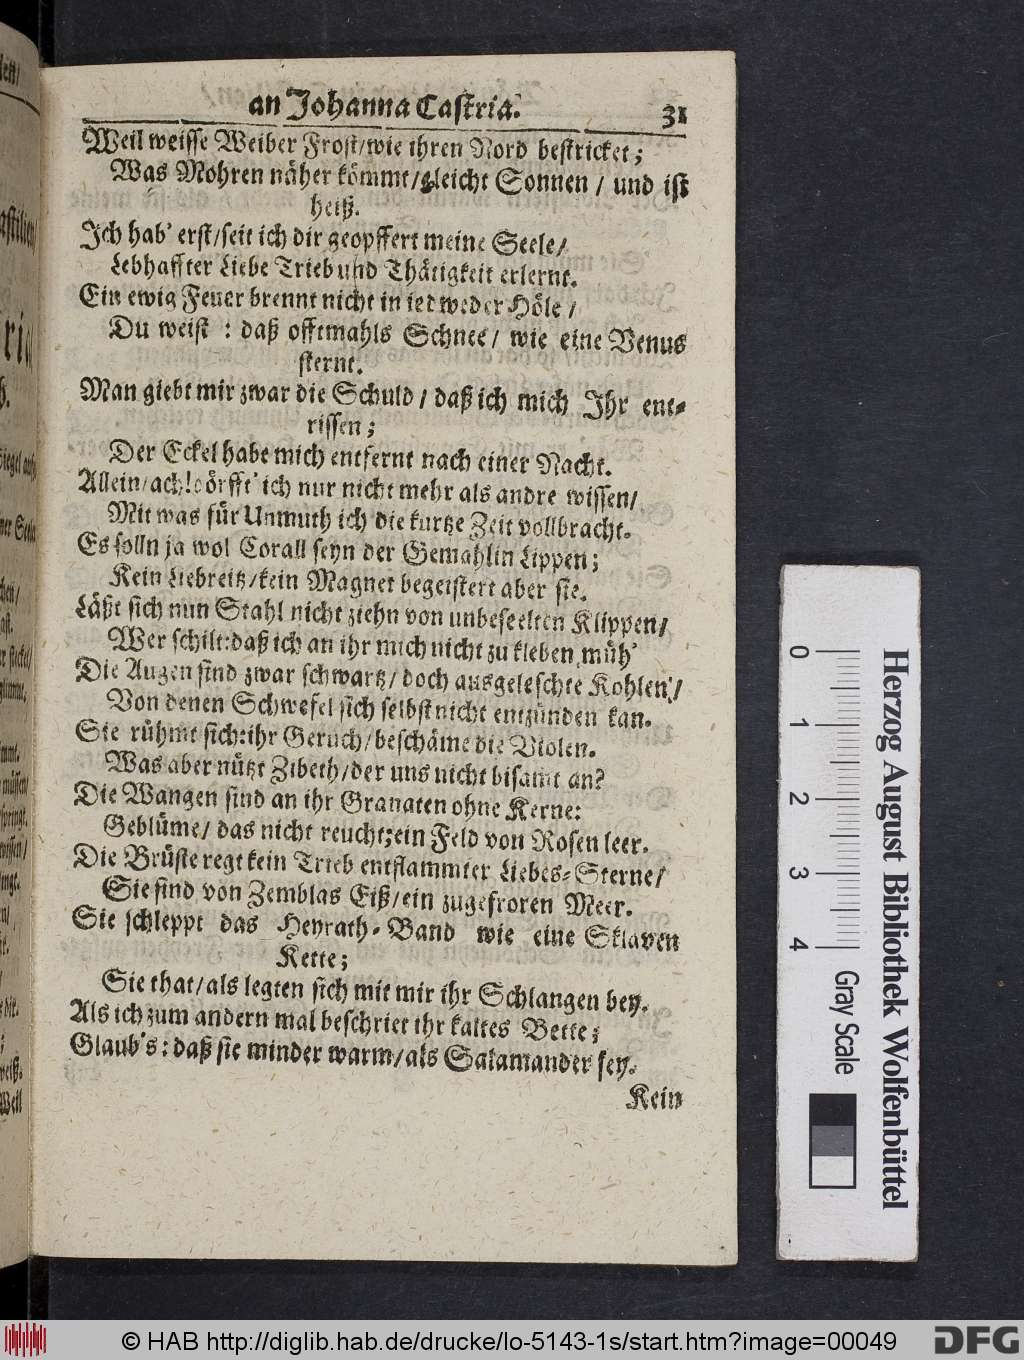 an Johanna Castria. 31
Weil weisse Weiber Frost/wie ihren Nord bestricket;
Was Mohren näher kömmt/gleicht Sonnen / und ist
heiß.
Ich hab' erst/seit ich dir geopffert meine Seele/
Lebhaffter Liebe Trieb und Thätigkeit erlernt.
Ein ewig Feuer brennt nicht in iedweder Höle /
Du weist : daß offtmahls Schnee / wie eine Venus
sternt.
Man giebt mir zwar die Schuld / daß ich mich Ihr ent-
rissen ;
Der Eckel habe mich entfernt nach einer Nacht.
Allein/ach!dörfft' ich nur nicht mehr als andre wissen/
Mit was für Unmuth ich die kurtze Zeit vollbracht.
Es solln ja wol Corall seyn der Gemahlin Lippen;
Kein Liebreitz/kein Magnet begeistert aber sie.
Läßt sich nun Stahl nicht ziehn von unbeseelten Klippen/
Wer schilt:daß ich an ihr mich nicht zu kleben müh'
Die Augen sind zwar schwartz/ doch ausgeleschte Kohlen/
Von denen Schwefel sich selbst nicht entzünden kan.
Sie rühmt sich:ihr Geruch/beschäme die Violen.
Was aber nützt Zibeth/der uns nicht bisamt an?
Die Wangen sind an ihr Granaten ohne Kerne:
Geblüme/ das nicht reucht;ein Feld von Rosen leer.
Die Brüste regt kein Trieb entflammter Liebes-Sterne/
Sie sind von Zemblas Eiß/ein zugefroren Meer.
Sie schleppt das Heyrath-Band wie eine Sklaven
Kette;
Sie that/als legten sich mit mir ihr Schlangen bey.
Als ich zum andern mal beschriet ihr kaltes Bette;
Glaub's : daß sie minder warm/als Salamander sey.
Kein
Herzog August Bibliothek Wolfenbüttel
0 1 2 3 4
Gray Scale
© HAB http://diglib.hab.de/drucke/lo-5143-1s/start.htm?image=00049
DFG